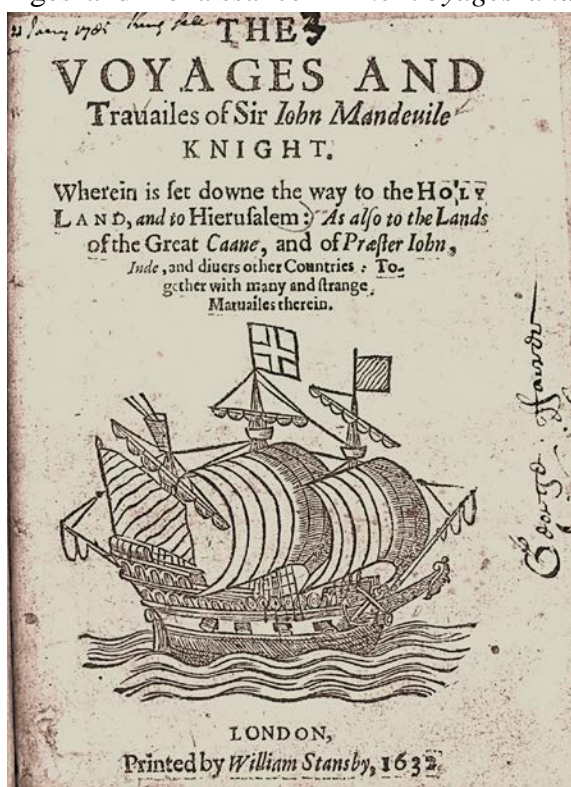 21 Janry 1785
THE 3
VOYAGES AND
Trauailes of Sir Iohn Mandeuile
KNIGHT.
Wherein is ſet downe the way to the HOLY
LAND, and to Hieruſalem: As alſo to the Lands
of the Great Caane, and of Præſter Iohn,
Inde, and diuers other Countries: To-
gether with many and ſtrange
Maruailes therein.
LONDON,
Printed by William Stansby, 1632